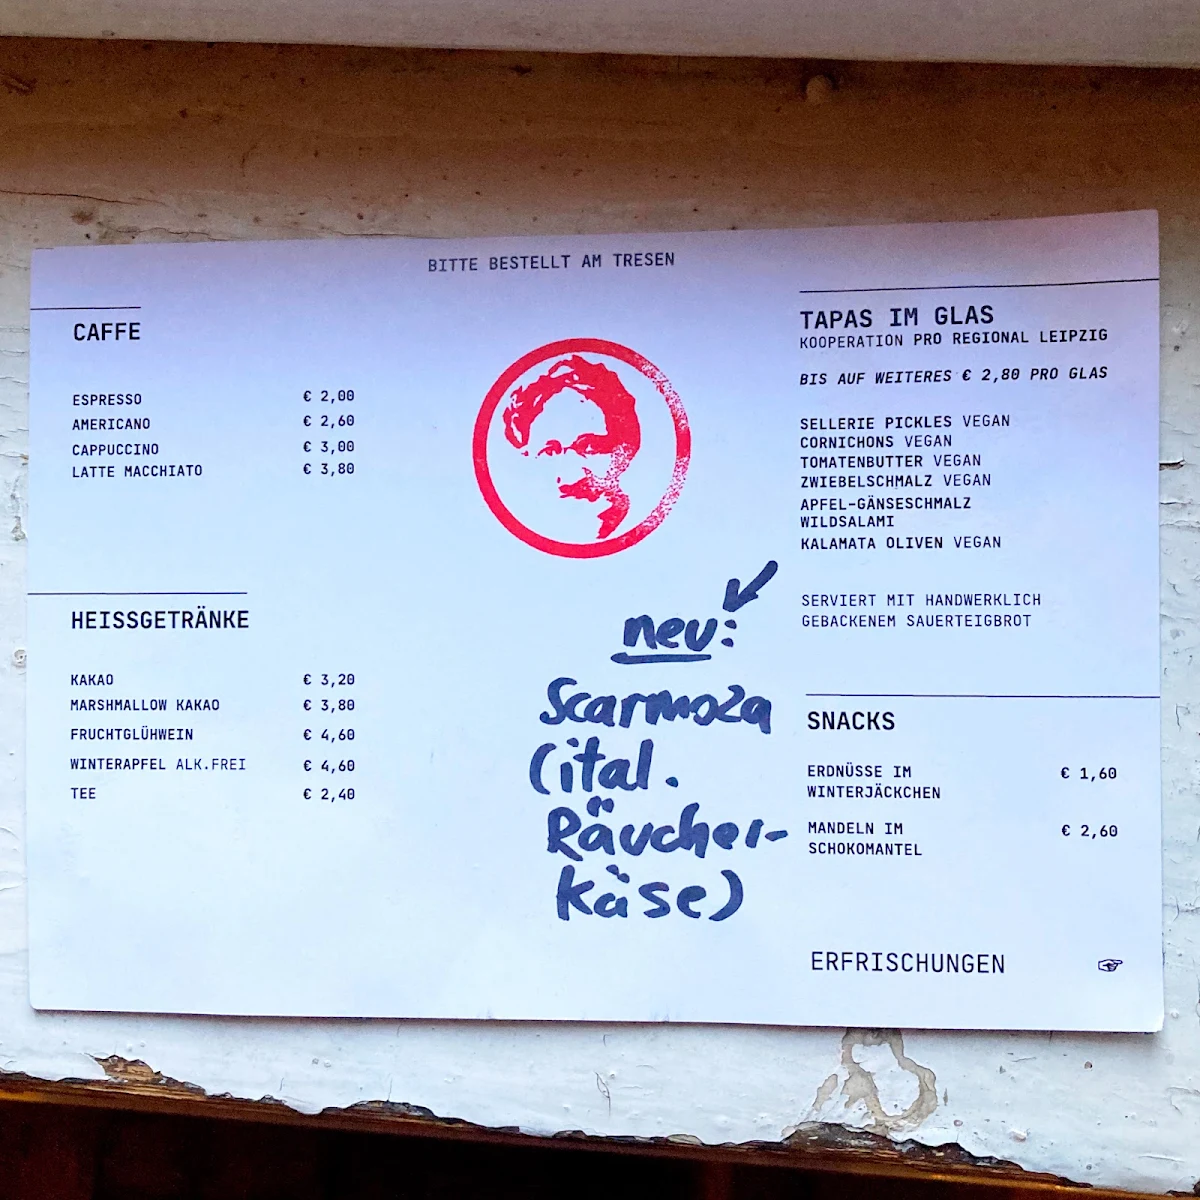 BITTE BESTELLT AM TRESEN
CAFFE
ESPRESSO € 2,00
AMERICANO € 2,60
CAPPUCCINO € 3,00
LATTE MACCHIATO € 3,80
HEISSGETRÄNKE
KAKAO € 3,20
MARSHMALLOW KAKAO € 3,80
FRUCHTGLÜHWEIN € 4,60
WINTERAPFEL ALK.FREI € 4,60
TEE € 2,40
neu:
Scarmoza
(ital.
Räucher-
käse)
TAPAS IM GLAS
KOOPERATION PRO REGIONAL LEIPZIG
BIS AUF WEITERES € 2,80 PRO GLAS
SELLERIE PICKLES VEGAN
CORNICHONS VEGAN
TOMATENBUTTER VEGAN
ZWIEBELSCHMALZ VEGAN
APFEL-GÄNSESCHMALZ
WILDSALAMI
KALAMATA OLIVEN VEGAN
SERVIERT MIT HANDWERKLICH
GEBACKENEM SAUERTEIGBROT
SNACKS
ERDNÜSSE IM € 1,60
WINTERJÄCKCHEN
MANDELN IM € 2,60
SCHOKOMANTEL
ERFRISCHUNGEN